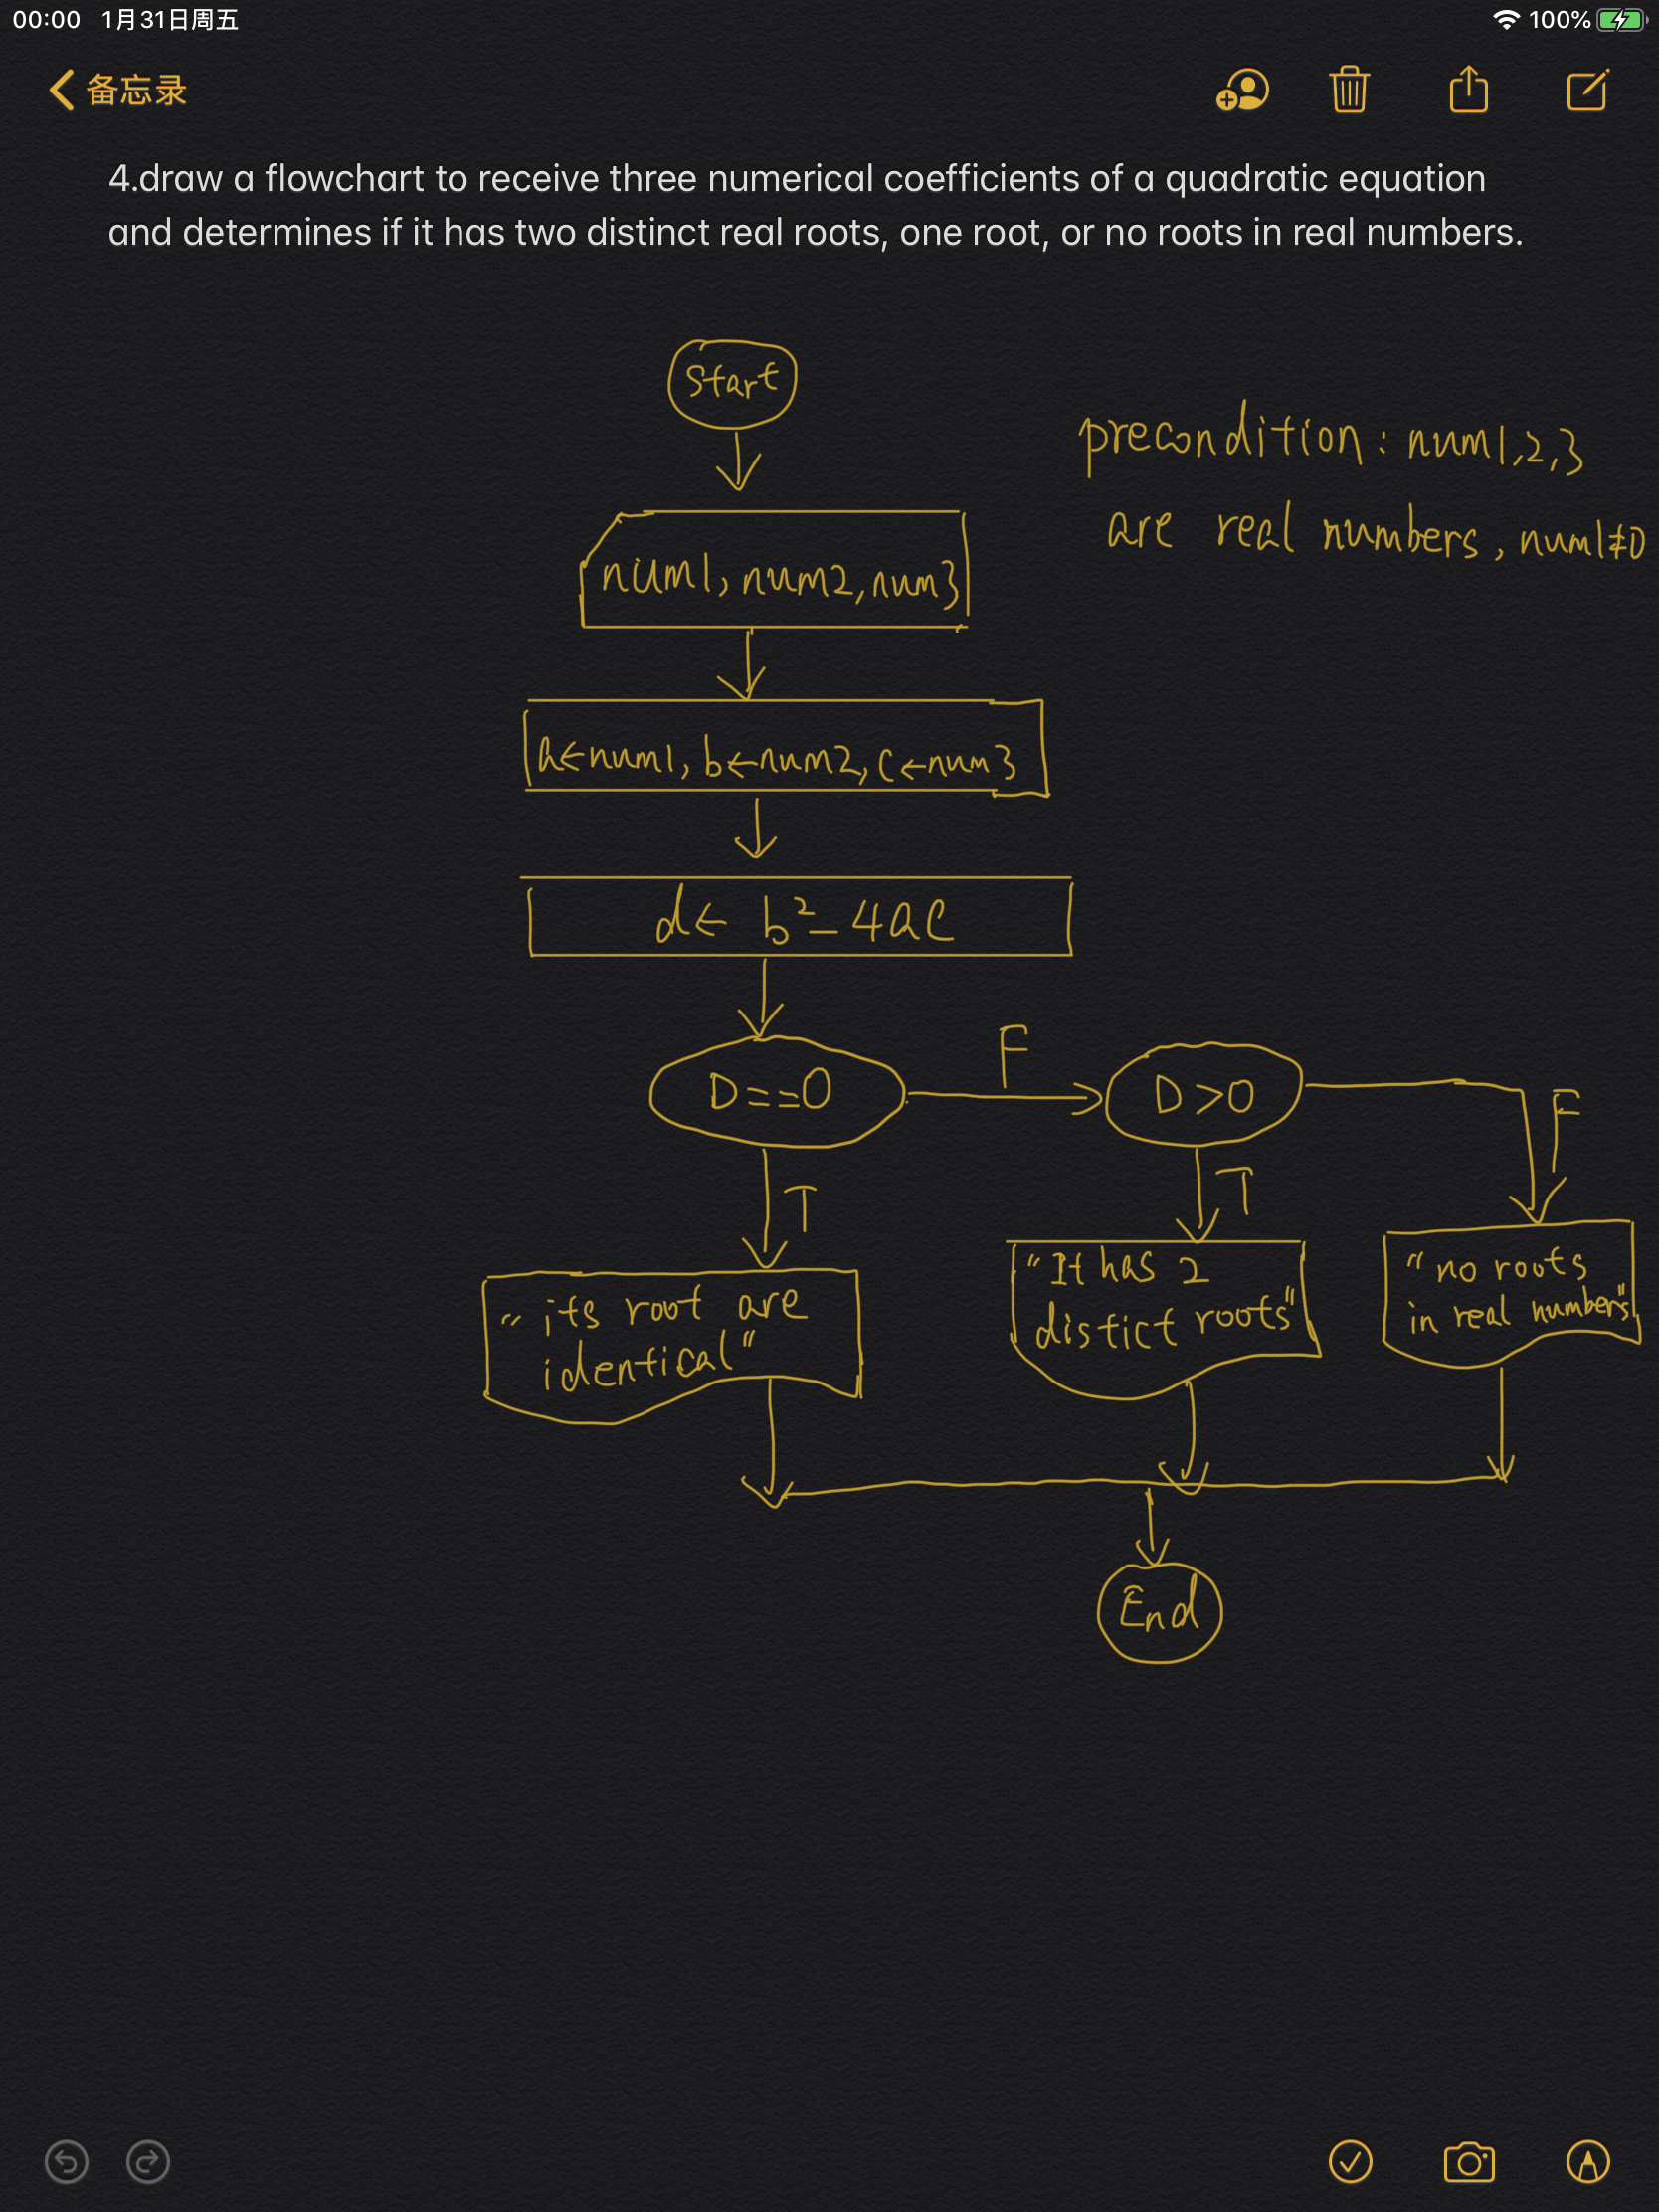 00:00 1月31日周五
100%
备忘录
4.draw a flowchart to receive three numerical coefficients of a quadratic equation
and determines if it has two distinct real roots, one root, or no roots in real numbers.
Start
precondition: num1,2,3
are real numbers, num1≠0
num1, num2, num3
a←num1, b←num2, c←num3
d← b²-4ac
D==0
F
D>0
F
T
T
"its root are
identical"
"It has 2
distict roots"
"no roots
in real numbers"
End